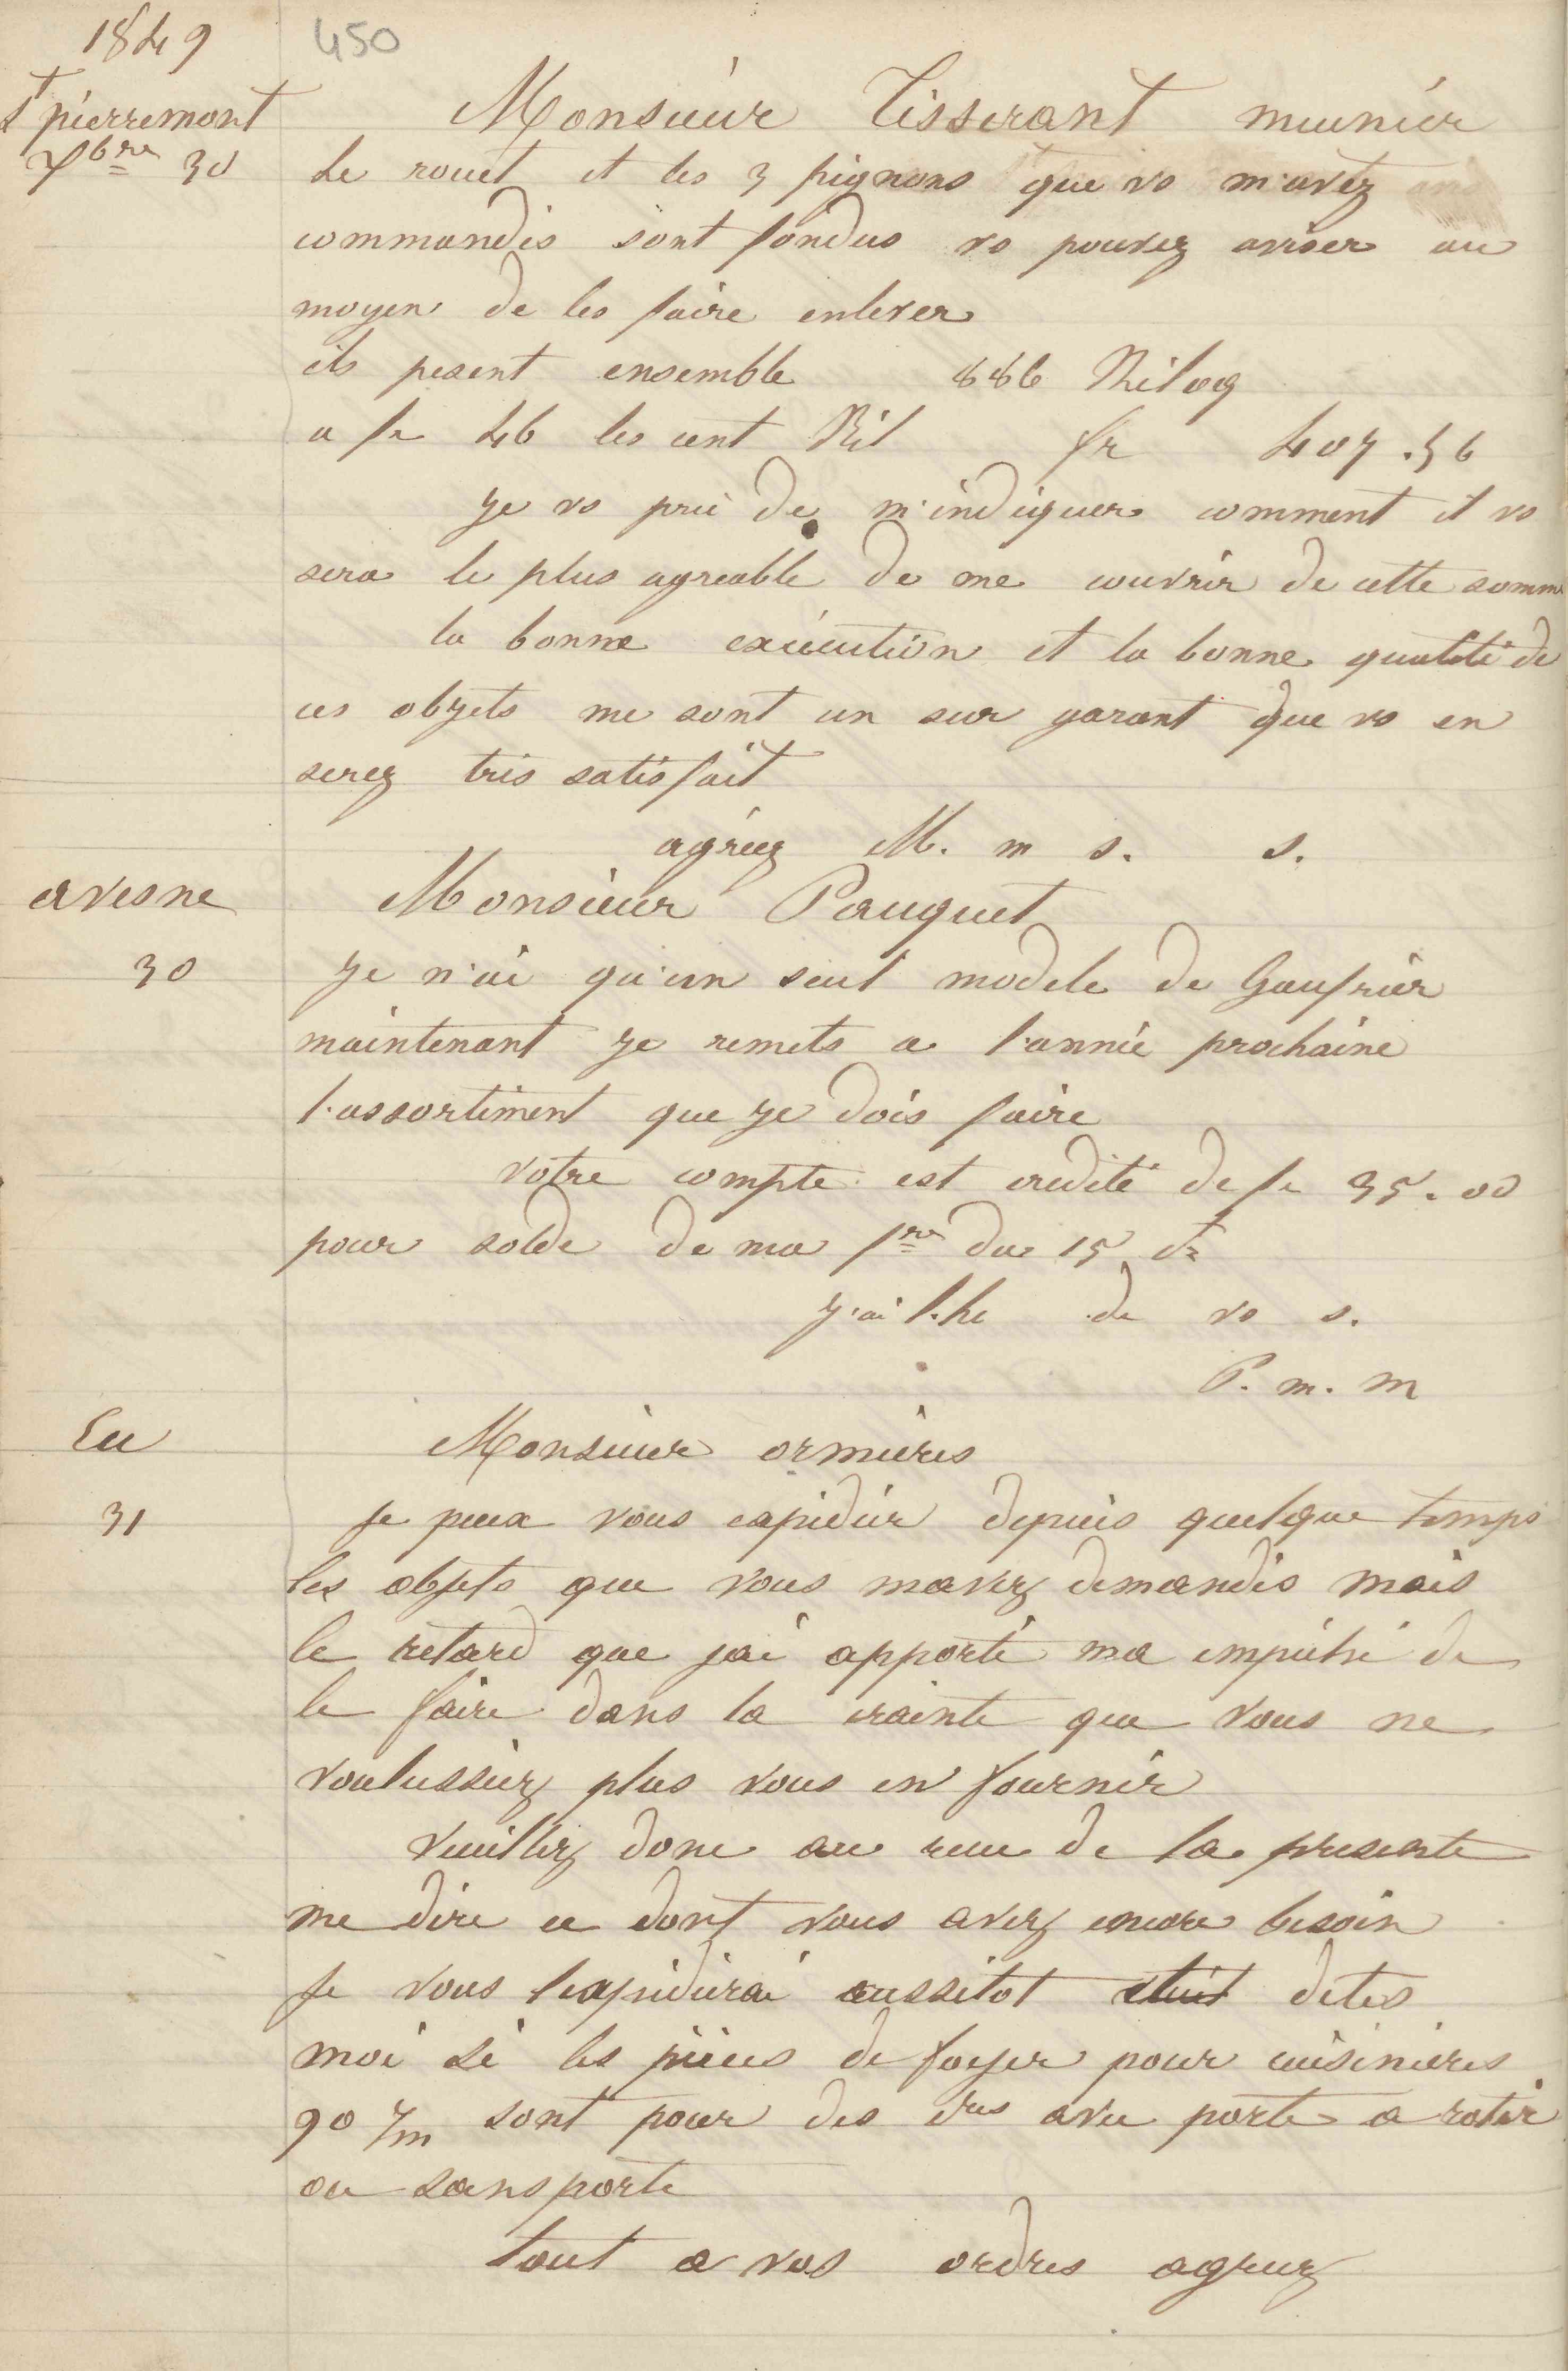 1849
450
St pierremont
Monsieur Tisserant meunier
7bre 30
Le rouet et les 3 pignons que vs m'avez
commandés sont fondus vs pouvez aviser au
moyen de les faire enlever
ils pesent ensemble 886 Kilog
a fr 46 les cent Kil fr 407.56
je vs prie de m'indiquer comment il vs
sera le plus agreable de me couvrir de cette somme
la bonne exécution et la bonne qualité de
ces objets me sont un sur garant que vs en
serez très satisfait
agréez M. m s. s.
avesne
Monsieur Pauquet
30
je n'ai qu'un seul modele de Gaufrier
maintenant je remets a l'année prochaine
l'assortiment que je dois faire
votre compte est credité de fr 35.00
pour solde de ma fre du 15 dr
j'ai l.he de vs s.
P. m. m
Eu
Monsieur ormieres
31
Je peux vous expedier depuis quelque temps
les objets que vous mavez demandés mais
le retard que jai apporté ma empéché de
le faire dans la crainte que vous ne
voulussiez plus vous en fournir
Veuillez donc au recu de la presente
me dire ce dont vous avez encore besoin
Je vous lexpedierai aussitot dites
moi si les pièces de foyer pour cuisinieres
90 c/m sont pour des dres avec porte a rotir
ou sans porte
tout a vos ordres agreez